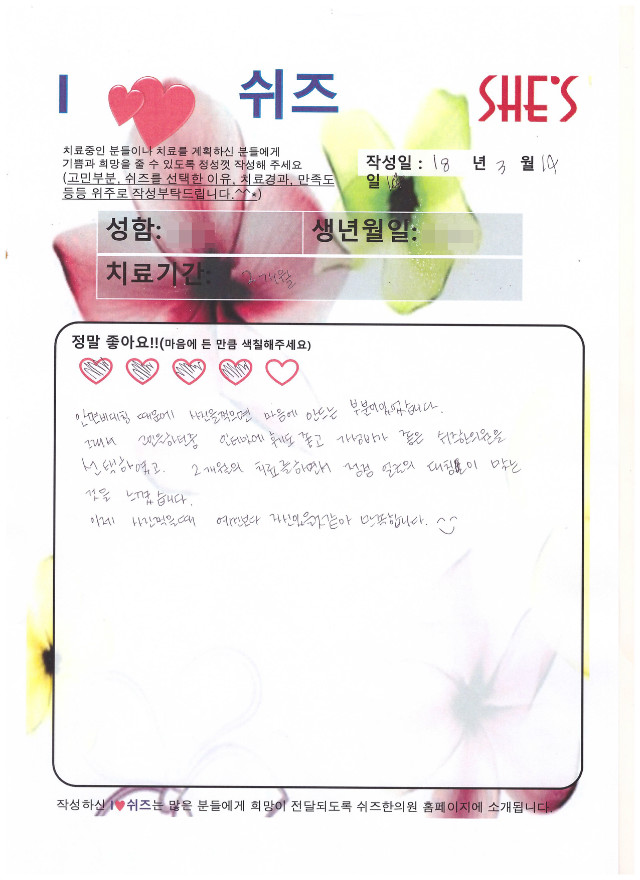 I 쉬즈
SHE'S
치료중인 분들이나 치료를 계획하신 분들에게
기쁨과 희망을 줄 수 있도록 정성껏 작성해 주세요
(고민부분, 쉬즈를 선택한 이유, 치료경과, 만족도
등등 위주로 작성부탁드립니다.^^*)
작성일 : 18 년 3 월
일
성함:
생년월일:
치료기간: 2개월
정말 좋아요!!(마음에 든 만큼 색칠해주세요)
안면비대칭 때문에 사진을찍으면 마음에 안드는 부분이있었습니다.
그래서 고민하던중 인터넷에 후기도 좋고 좋은 쉬즈한의원을
선택하였고. 2개월의 치료를하면서 점점 얼굴의 대칭이 맞는
것을 느꼈습니다.
이제 사진찍을때 예전보다 자신있을것같아 만족합니다.
작성하신 I♥쉬즈는 많은 분들에게 희망이 전달되도록 쉬즈한의원 홈페이지에 소개됩니다.